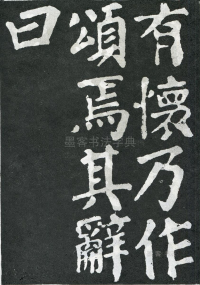 有懷乃作
頌焉其辭
曰
墨客书法字典